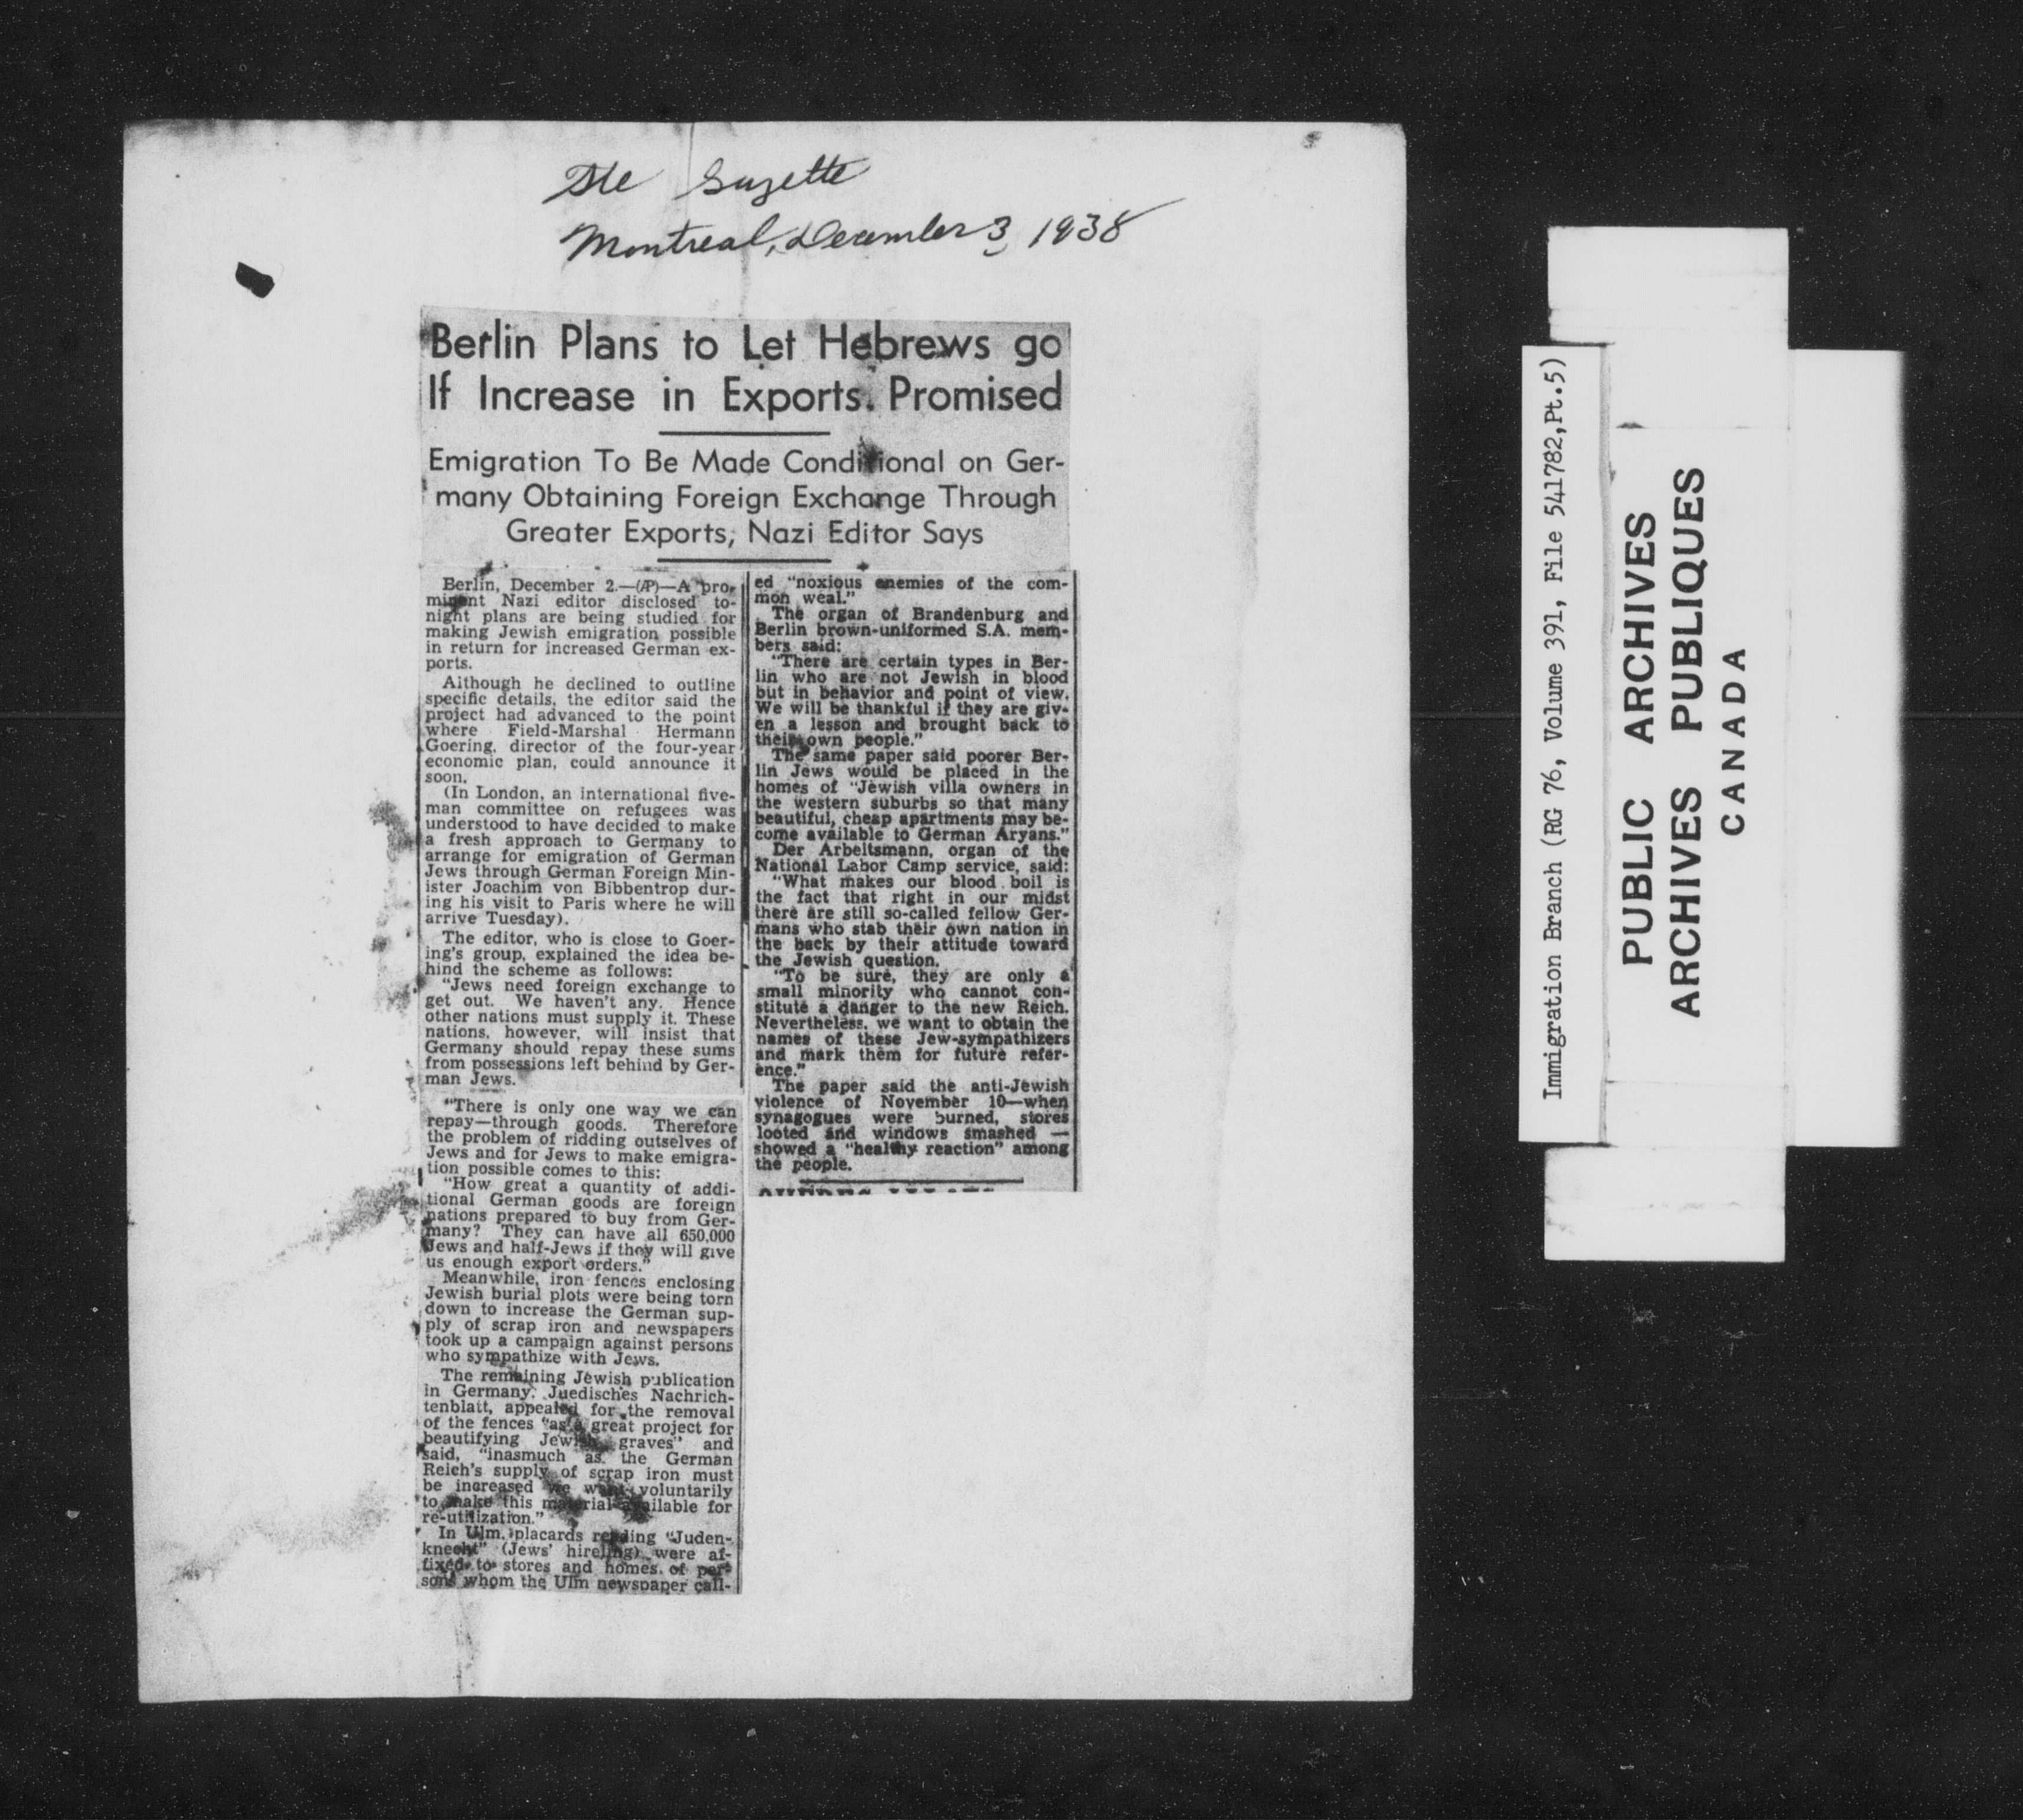 The Gazette
Montreal, December 3, 1938
Berlin Plans to Let Hebrews go
If Increase in Exports. Promised
Emigration To Be Made Conditional on Ger-
many Obtaining Foreign Exchange Through
Greater Exports, Nazi Editor Says
Berlin, December 2.—(AP)—A pro-
minent Nazi editor disclosed to-
night plans are being studied for
making Jewish emigration possible
in return for increased German ex-
ports.
Although he declined to outline
specific details, the editor said the
project had advanced to the point
where Field-Marshal Hermann
Goering, director of the four-year
economic plan, could announce it
soon.
(In London, an international five-
man committee on refugees was
understood to have decided to make
a fresh approach to Germany to
arrange for emigration of German
Jews through German Foreign Min-
ister Joachim von Bibbentrop dur-
ing his visit to Paris where he will
arrive Tuesday).
The editor, who is close to Goer-
ing's group, explained the idea be-
hind the scheme as follows:
"Jews need foreign exchange to
get out. We haven't any. Hence
other nations must supply it. These
nations, however, will insist that
Germany should repay these sums
from possessions left behind by Ger-
man Jews.
"There is only one way we can
repay—through goods. Therefore
the problem of ridding outselves of
Jews and for Jews to make emigra-
tion possible comes to this:
"How great a quantity of addi-
tional German goods are foreign
nations prepared to buy from Ger-
many? They can have all 650,000
Jews and half-Jews if they will give
us enough export orders."
Meanwhile, iron fences enclosing
Jewish burial plots were being torn
down to increase the German sup-
ply of scrap iron and newspapers
took up a campaign against persons
who sympathize with Jews.
The remaining Jewish publication
in Germany, Juedisches Nachrich-
tenblatt, appealed for the removal
of the fences "as a great project for
beautifying Jewish graves" and
said, "inasmuch as the German
Reich's supply of scrap iron must
be increased we want voluntarily
to make this material available for
re-utilization."
In Ulm, placards reading "Juden-
knecht" (Jews' hireling) were af-
fixed to stores and homes of per-
sons whom the Ulm newspaper call-
ed "noxious enemies of the com-
mon weal."
The organ of Brandenburg and
Berlin brown-uniformed S.A. mem-
bers said:
"There are certain types in Ber-
lin who are not Jewish in blood
but in behavior and point of view.
We will be thankful if they are giv-
en a lesson and brought back to
their own people."
The same paper said poorer Ber-
lin Jews would be placed in the
homes of "Jewish villa owners in
the western suburbs so that many
beautiful, cheap apartments may be-
come available to German Aryans."
Der Arbeitsmann, organ of the
National Labor Camp service, said:
"What makes our blood boil is
the fact that right in our midst
there are still so-called fellow Ger-
mans who stab their own nation in
the back by their attitude toward
the Jewish question.
"To be sure, they are only a
small minority who cannot con-
stitute a danger to the new Reich.
Nevertheless, we want to obtain the
names of these Jew-sympathizers
and mark them for future refer-
ence."
The paper said the anti-Jewish
violence of November 10—when
synagogues were burned, stores
looted and windows smashed —
showed a "healthy reaction" among
the people.
Immigration Branch (RG 76, Volume 391, File 541782,Pt.5)
PUBLIC ARCHIVES
ARCHIVES PUBLIQUES
CANADA